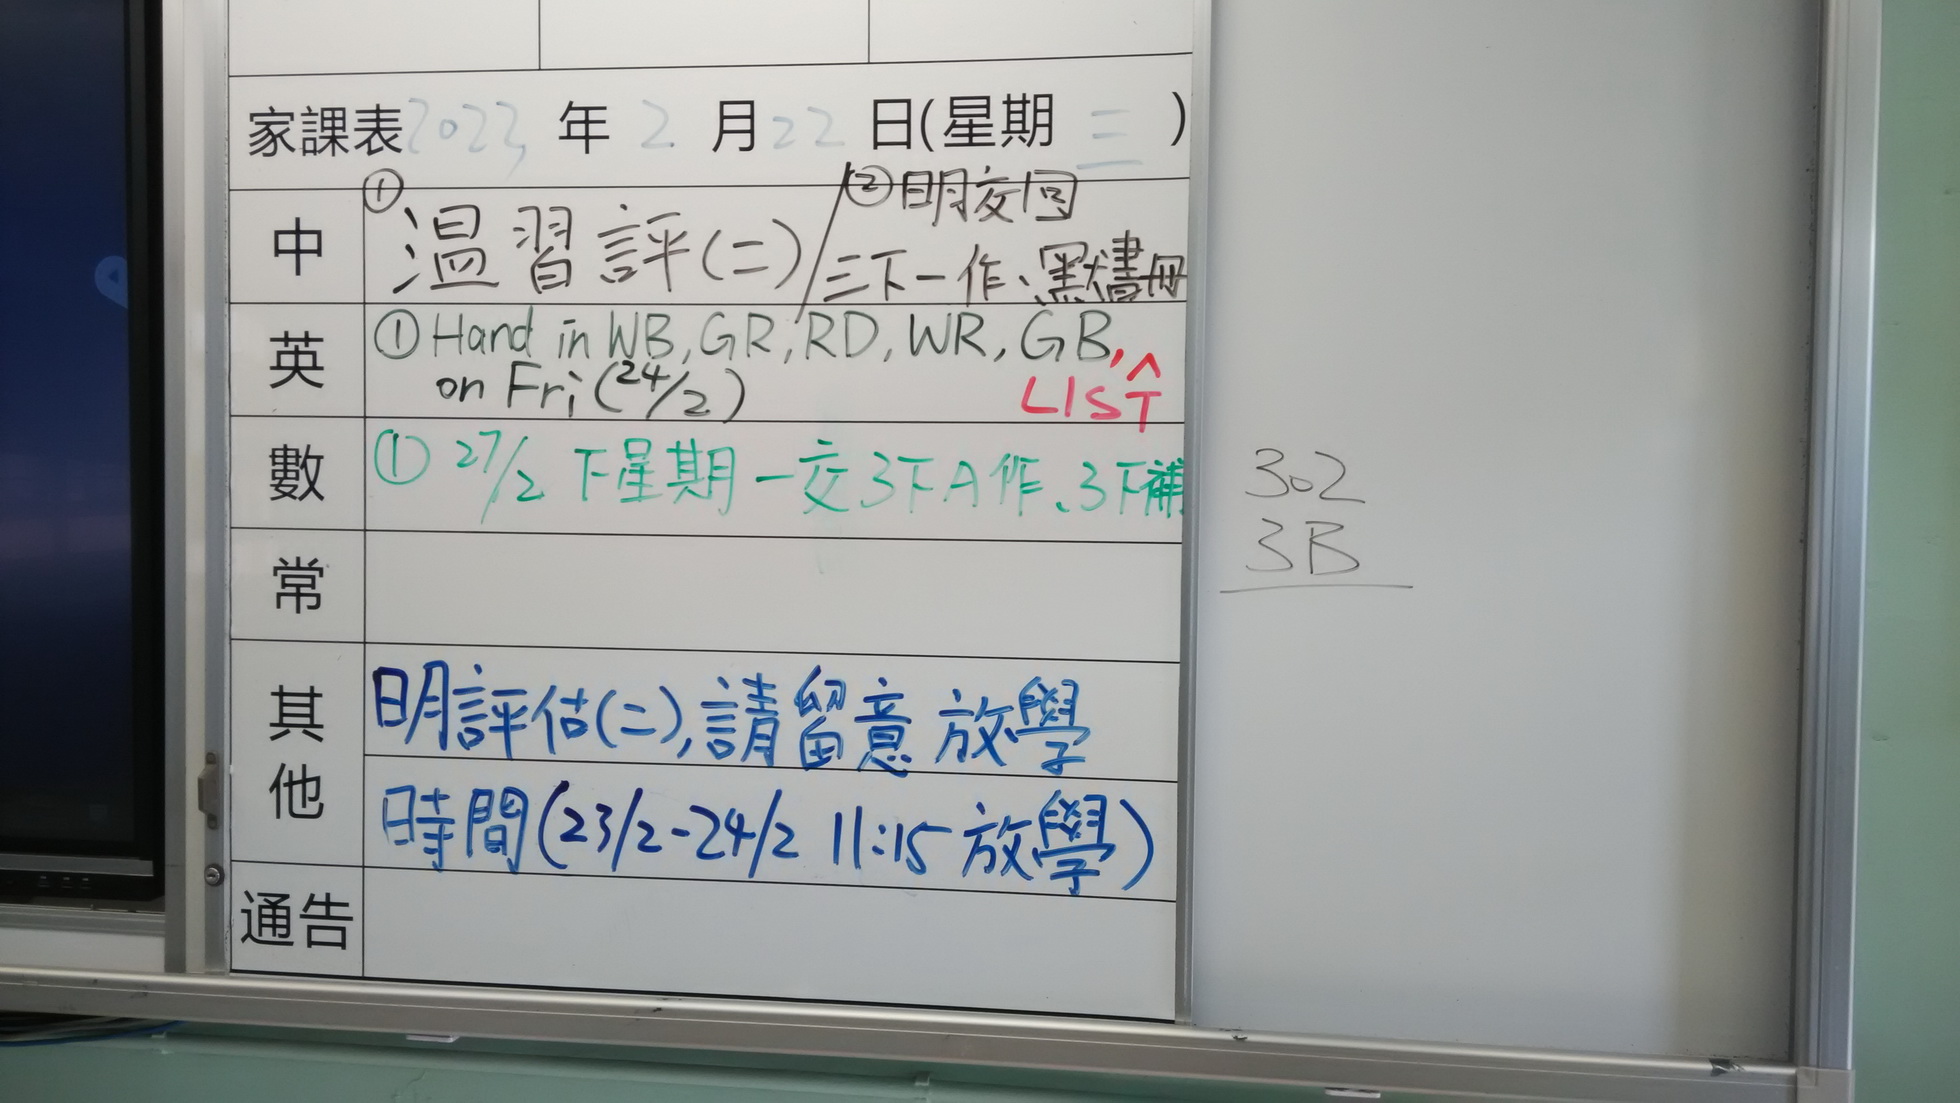 家課表2023年2月22日(星期三)
中
① 溫習評(二)/
② 明交回
三下一作、默書冊
英
① Hand in WB, GR, RD, WR, GB, ^
LIST
on Fri (24/2)
數
① 27/2 下星期一交3下A作、3下補
常
其他
明評估(二),請留意放學
時間(23/2-24/2 11:15放學)
通告
302
3B